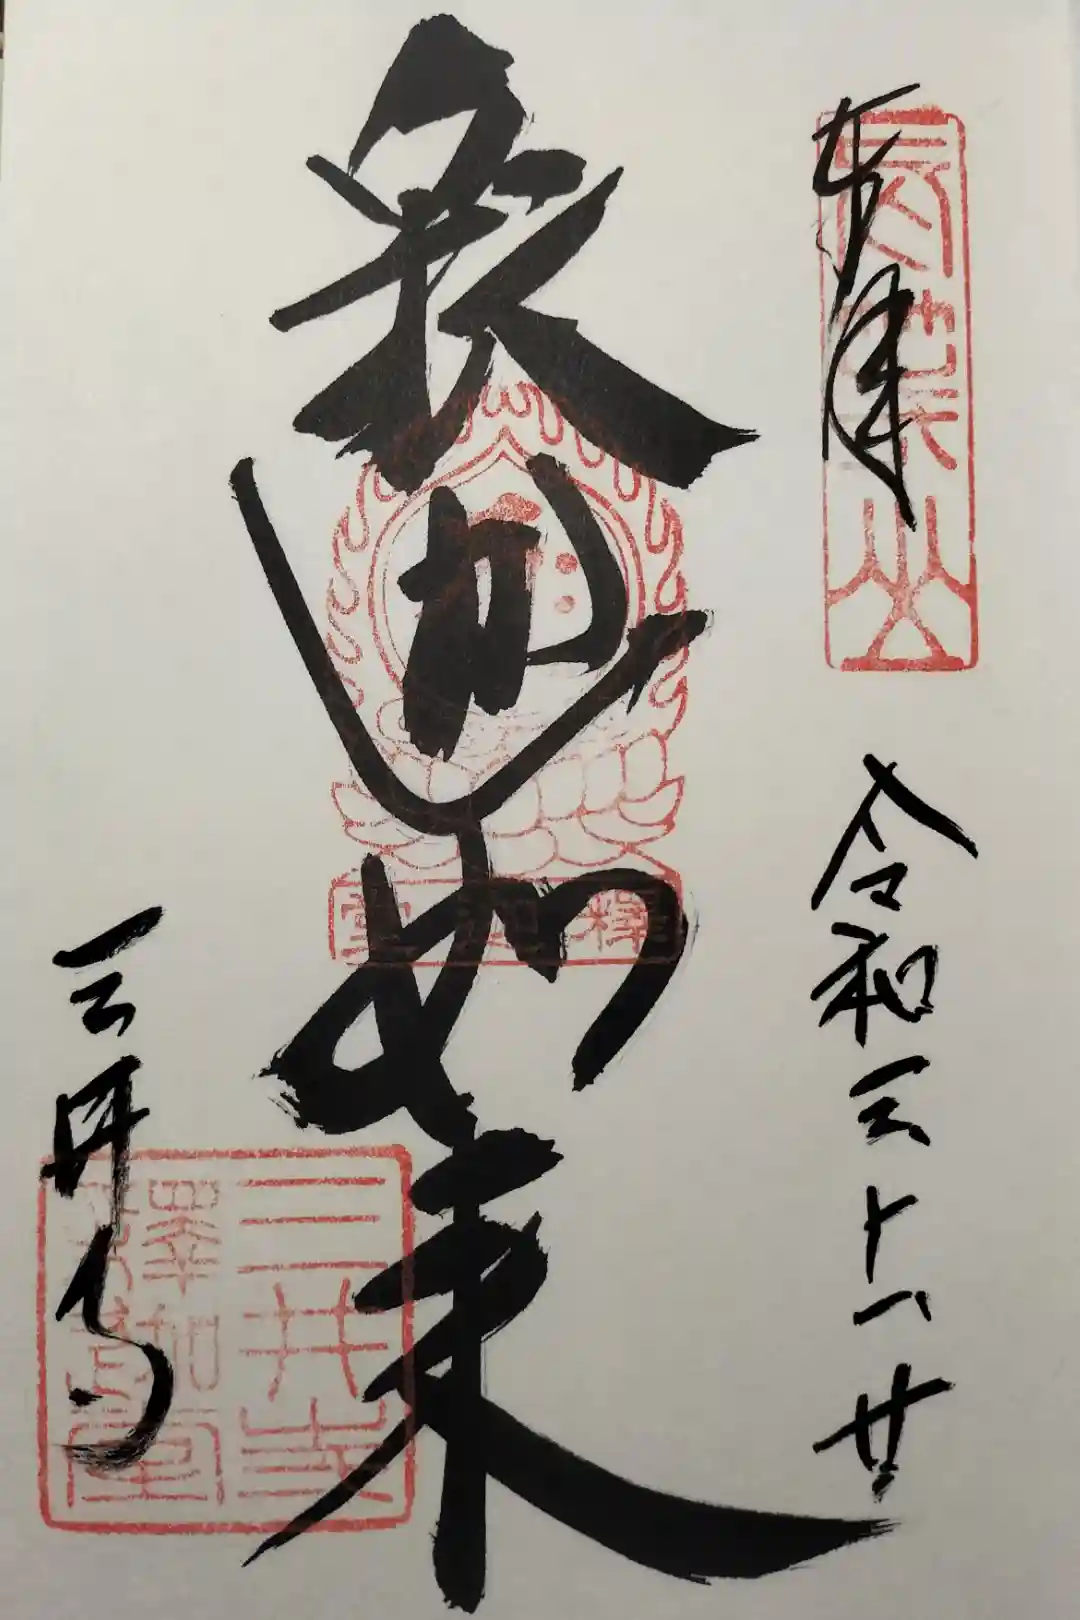 奉拝
長等山
令和三十一廿
釈迦如来
釋迦堂
三井寺
三井寺
釋迦堂